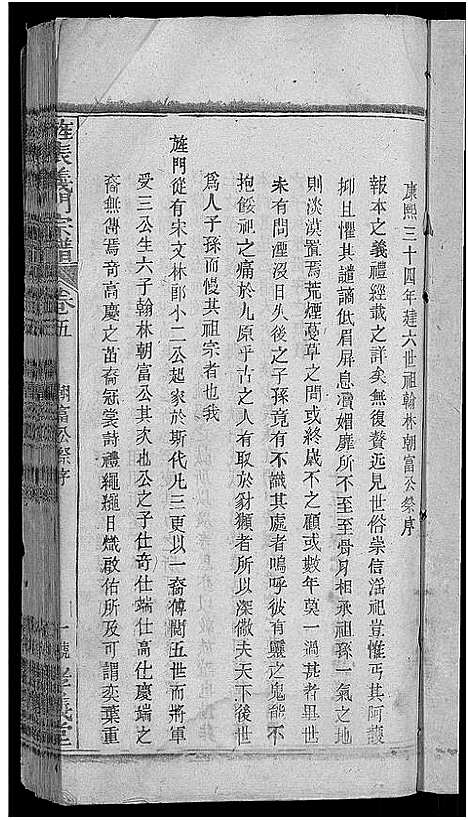 康熙三十四年建六世祖翰林朝富公祭序
報本之義禮經載之詳矣無復贅遠見世俗崇信淫祀豈惟丐其阿護
抑且懼其譴謫低眉屏息瀆媚靡所不至至骨月相承祖孫一氣之地
則淡漠置焉荒煙蔓草之間或終歲不之顧或數年莫一過甚者畢世
未有問湮沒日久後之子孫竟有不識其處者嗚呼彼有靈之鬼能不
抱餒祀之痛於九原乎古之人有取於豺獺者所以深儆夫天下後世
為人子孫而慢其祖宗者也我
旌門從有宋文林郎小二公起家於斯代凡三更以一裔傳閱五世而將軍
受三公生六子翰林朝富公其次也公之子仕奇仕端仕高仕慶端之
裔無傳焉奇高慶之苗裔冠裳詩禮繩繩日熾啟佑所及可謂奕葉重
旌表義門宗譜
卷五
朝富公祭序
一號孝義堂